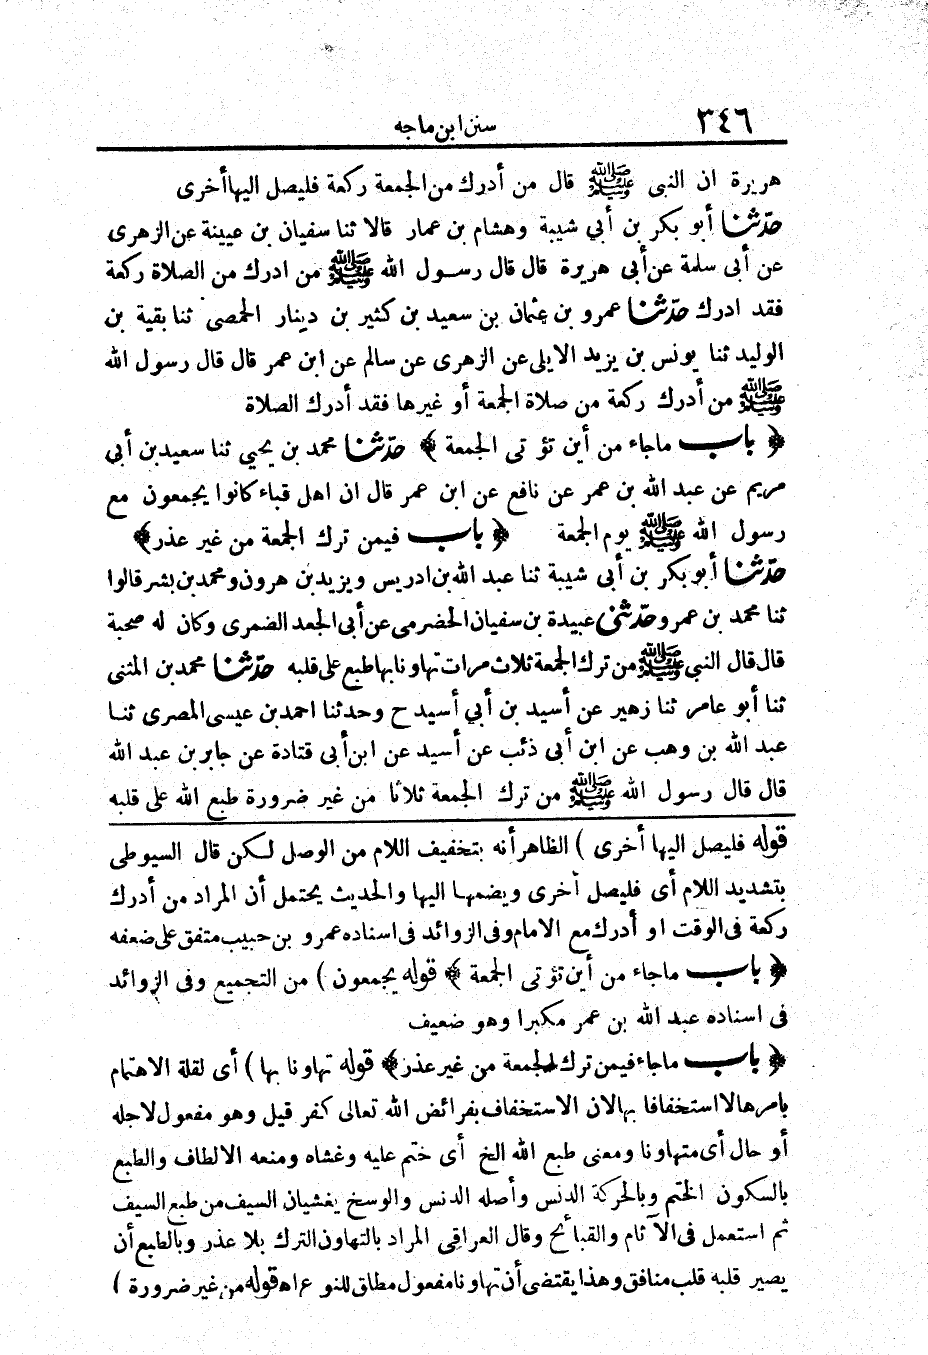 ٣٤٦
سنن ابن ماجه
هريرة ان النبى ﷺ قال من أدرك من الجمعة ركعة فليصل اليها أخرى
حدّثنا أبو بكر بن أبي شيبة وهشام بن عمار قالا ثنا سفيان بن عيينة عن الزهرى
عن أبى سلمة عن أبى هريرة قال قال رسول الله ﷺ من ادرك من الصلاة ركعة
فقد ادرك حدّثنا عمرو بن عثمان بن سعيد بن كثير بن دينار الحمصى ثنا بقية بن
الوليد ثنا يونس بن يزيد الايلى عن الزهرى عن سالم عن ابن عمر قال قال رسول الله
ﷺ من أدرك ركعة من صلاة الجمعة أو غيرها فقد أدرك الصلاة
﴿ باب ماجاء من أين تؤتى الجمعة ﴾ حدّثنا محمد بن يحيى ثنا سعيد بن أبي
مريم عن عبد الله بن عمر عن نافع عن ابن عمر قال ان اهل قباء كانوا يجمعون مع
رسول الله ﷺ يوم الجمعة ﴿ باب فيمن ترك الجمعة من غير عذر ﴾
حدّثنا أبو بكر بن أبى شيبة ثنا عبد الله بن ادريس ويزيد بن هرون ومحمد بن بشر قالوا
ثنا محمد بن عمرو حدّثنى عبيدة بن سفيان الحضرمى عن أبى الجعد الضمرى وكان له صحبة
قال قال النبى ﷺ من ترك الجمعة ثلاث مرات تهاونا بها طبع على قلبه حدّثنا محمد بن المثنى
ثنا أبو عامر ثنا زهير عن أسيد بن أبي أسيد ح وحدثنا احمد بن عيسى المصرى ثنا
عبد الله بن وهب عن ابن أبى ذئب عن أسيد عن ابن أبى قتادة عن جابر بن عبد الله
قال قال رسول الله ﷺ من ترك الجمعة ثلاثا من غير ضرورة طبع الله على قلبه
قوله فليصل اليها أخرى ) الظاهر أنه بتخفيف اللام من الوصل لكن قال السيوطى
بتشديد اللام أى فليصل أخرى ويضمها اليها والحديث يحتمل أن المراد من أدرك
ركعة فى الوقت او أدرك مع الامام وفى الزوائد فى اسناده عمرو بن حبيب متفق على ضعفه
﴿ باب ماجاء من أين تؤتى الجمعة ﴾ قوله يجمعون ) من التجميع وفى الزوائد
فى اسناده عبد الله بن عمر مكبرا وهو ضعيف
﴿ باب ماجاء فيمن ترك الجمعة من غير عذر ﴾ قوله تهاونا بها ) أى لقلة الاهتمام
بامرها لا استخفافا بها لان الاستخفاف بفرائض الله تعالى كفر قيل وهو مفعول لاجله
أو حال أى متهاونا ومعنى طبع الله الخ أى ختم عليه وغشاه ومنعه الالطاف والطبع
بالسكون الختم وبالحركة الدنس وأصله الدنس والوسخ يغشيان السيف من طبع السيف
ثم استعمل فى الآثام والقبائح وقال العراقى المراد بالتهاون الترك بلا عذر وبالطبع أن
يصير قلبه قلب منافق وهذا يقتضى أن تهاونا مفعول مطلق للنوع اه قوله من غير ضرورة )